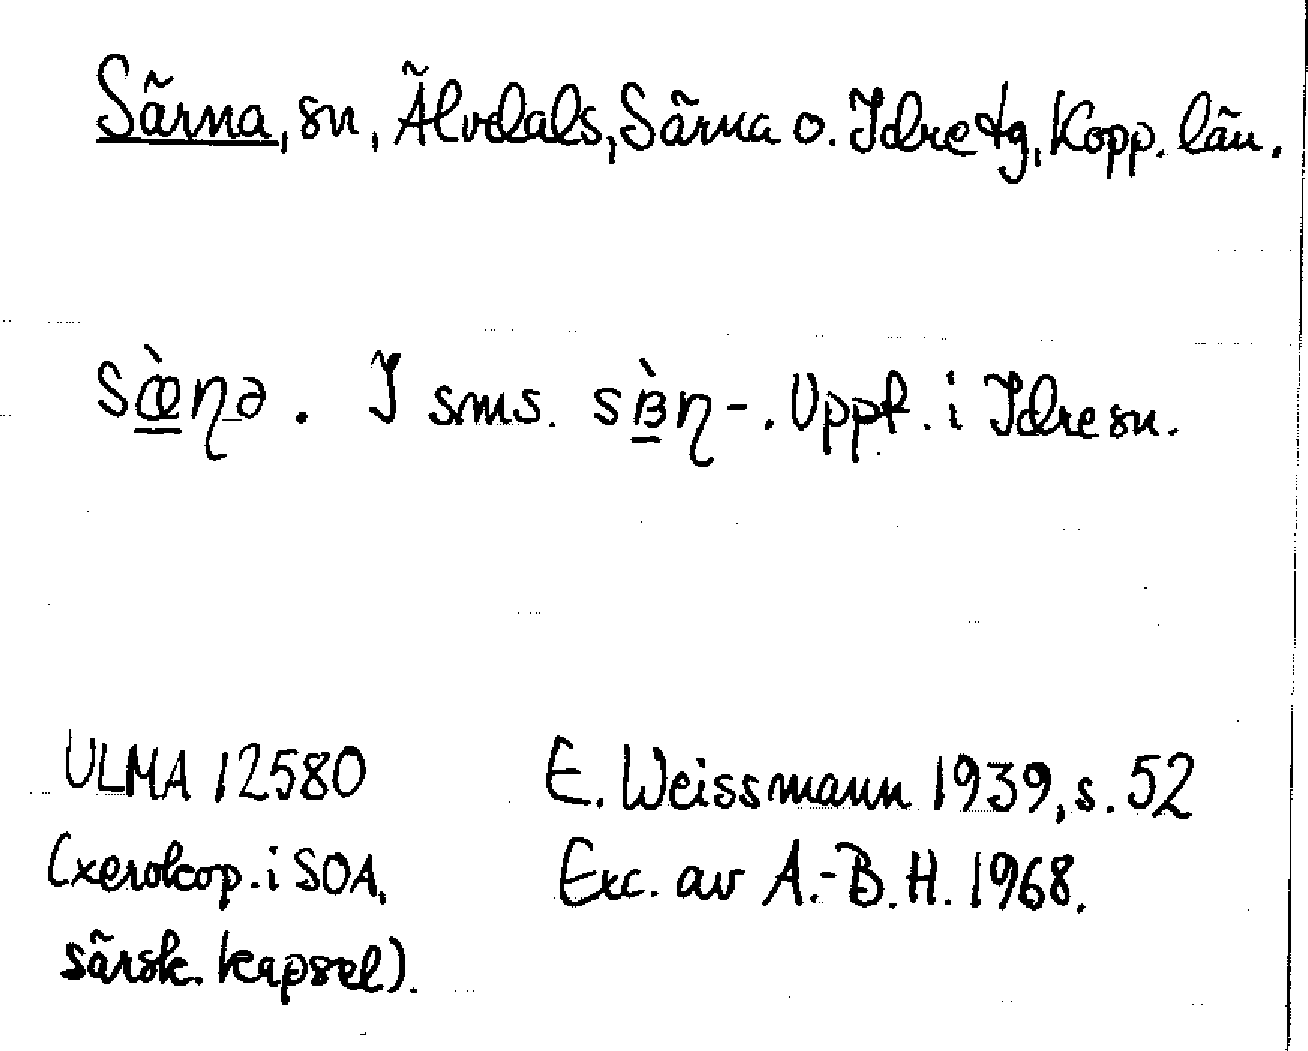 Särna, sn, Älvdals, Särna o. Idre tg, Kopp. län.
sœ̀ɳə. I sms. sɞ̀ɳ-. Uppt. i Idre sn.
ULMA 12580
(xerokop. i SOA,
särsk. kapsel).
E. Weissmann 1939, s. 52
Exc. av A.-B. H. 1968.